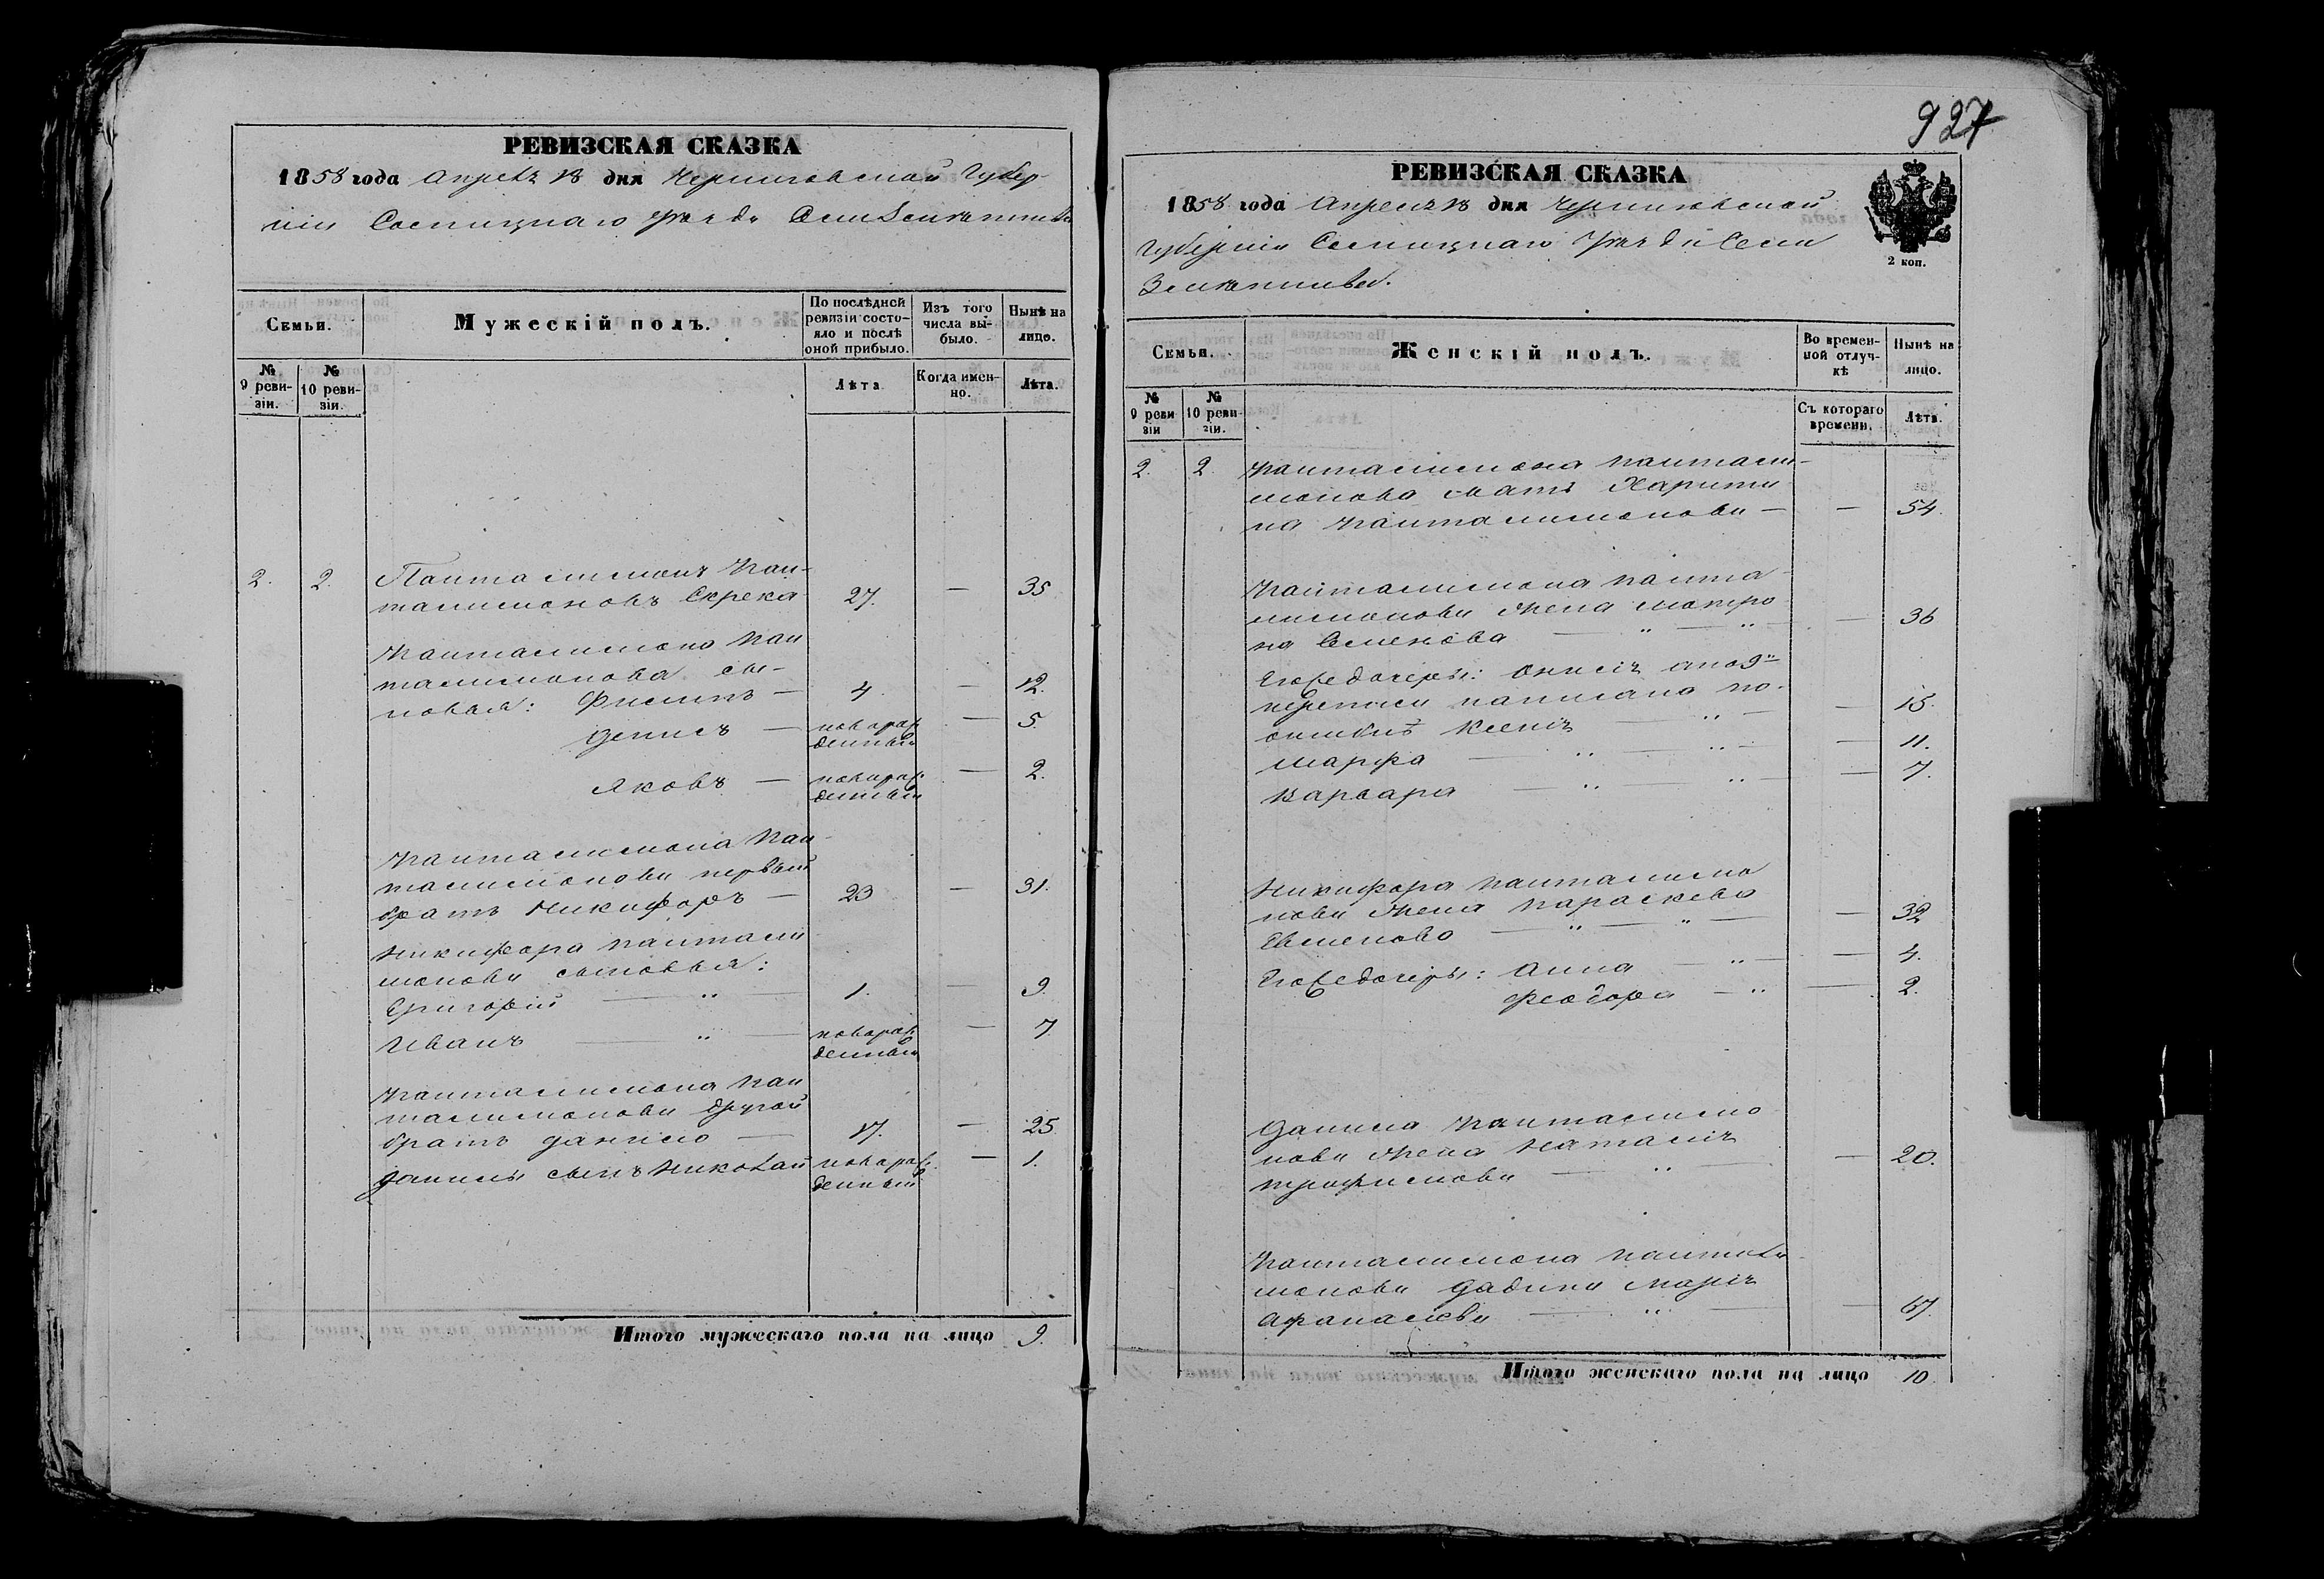 927
РЕВИЗСКАЯ СКАЗКА
1858 года Апреля 18 дня Черниговской Губер-
ніи Сосницкаго Уезда Села
Семьи.
Мужескій полъ.
По послѣдней ревизіи состо-
яло и послѣ оной прибыло.
Изъ того числа вы-
было.
Нынѣ на лицо.
№ 9 реви-
зіи.
№ 10 реви-
зіи.
Лѣта
Когда имен-
но.
Лѣта.
2. 2. Панталимонъ Пан-
талимоновъ Скрека 27. — 35
Панталимона Пан
талимонова сы-
новья: Филипъ — 4. — 12.
Денисъ — новорож
денный — 5.
Яковъ — новорож
денный — 2.
Панталимона Пан
талимонова первый
братъ Никифоръ — 23 — 31.
Никифора Пантали
монова сыновья:
Григорій — „ — 1. — 9.
Иванъ — „ — новорож
денный — 7
Панталимона Пан
талимонова другой
братъ Данило — 17. — 25
Данилы сынъ Николай новорож
денный — 1.
Итого мужескаго пола на лицо 9.
РЕВИЗСКАЯ СКАЗКА
1858 года Апреля 18 дня Черниговской
Губерніи Сосницкаго Уезда Села
2 коп.
Семьи.
Женскій полъ.
Во времен-
ной отлуч-
кѣ
Нынѣ на лицо.
№ 9 реви
зіи
№ 10 реви
зіи.
Съ котораго времени.
Лѣта.
2. 2. Панталимона Пантали-
монова мать Харити
на Панталимонова — — 54.
Панталимона Панта
лимонова жена Матро
на Семенова — „ — „ — 36
Его же дочеры: Онисія а по 9й
переписи написана по
ошибкѣ Ксенія — „ — — 15.
Марфа — „ — „ — — 11.
Варвара — „ — „ — — 7.
Никифора Панталимо
нова жена Параскева
Евменова — „ — „ — — 32
Его же дочеры: Анна — „ — — 4.
Феодора — „ — 2.
Данила Панталимо
нова жена Наталія
Трофимова — „ — — 20.
Панталимона Пантали
монова дядина Марія
Афанасіева — „ — — 67.
Итого женскаго пола на лицо 10